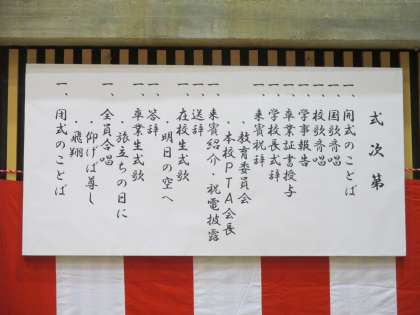 式次第
一、開式のことば
一、国歌斉唱
一、校歌斉唱
一、学事報告
一、卒業証書授与
一、学校長式辞
一、来賓祝辞
・教育委員会
・本校PTA会長
一、来賓紹介・祝電披露
一、送辞
一、在校生式歌
・明日の空へ
一、答辞
一、卒業生式歌
・旅立ちの日に
一、全員合唱
・仰げば尊し
・飛翔
一、閉式のことば